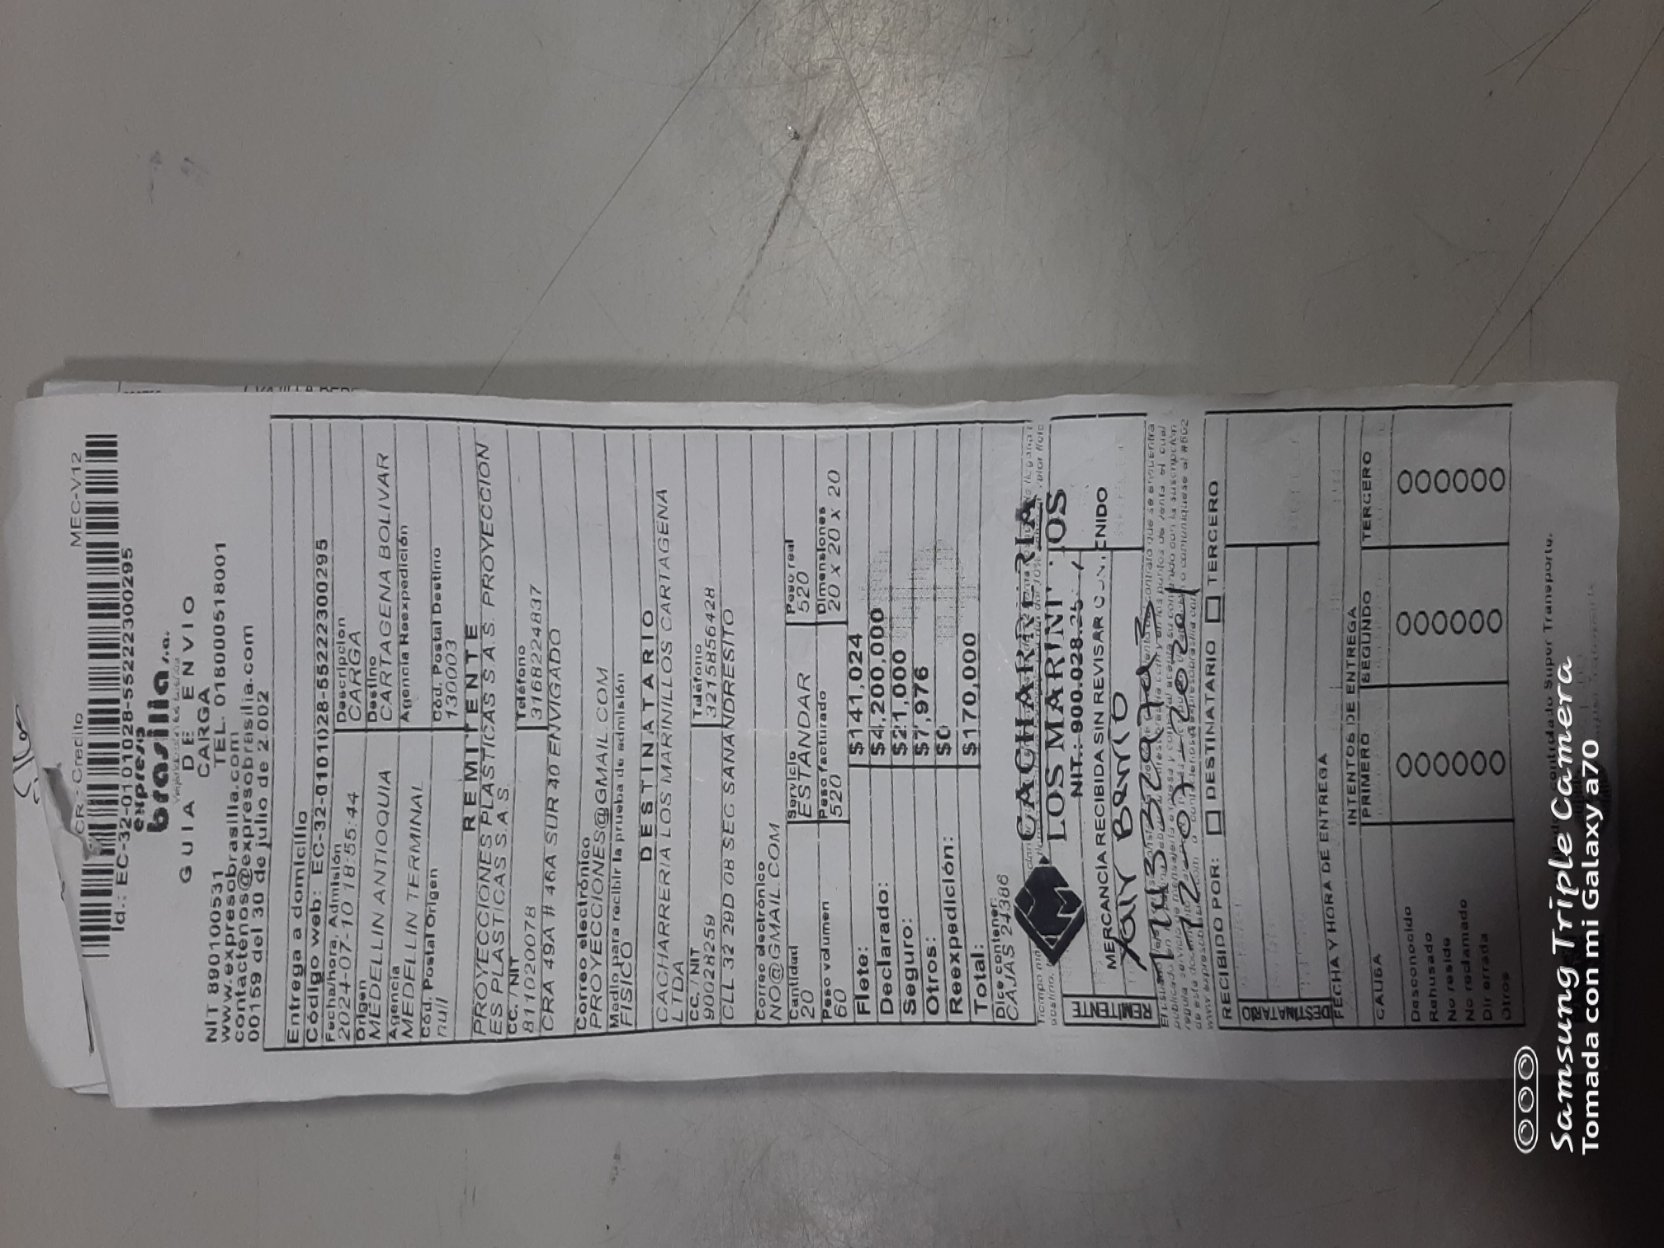 CR - Credito MEC-V12
Id.: EC-32-0101028-55222300295
expreso
brasilia s.a.
GUIA DE ENVIO
CARGA
NIT 890100531 TEL. 018000518001
www.expresobrasilia.com
contactenos@expresobrasilia.com
00159 del 30 de julio de 2.002
Entrega a domicilio
Código web: EC-32-0101028-55222300295
Fecha/hora. Admisión Descripcion
2024-07-10 18:55:44 CARGA
Origen Destino
MEDELLIN ANTIOQUIA CARTAGENA BOLIVAR
Agencia Agencia Reexpedición
MEDELLIN TERMINAL
Cód. Postal Origen Cód. Postal Destino
null 130003
REMITENTE
PROYECCIONES PLASTICAS S.A.S. PROYECCION
ES PLASTICAS S.A.S.
CC. / NIT Teléfono
811020078 3168224837
CRA 49A # 46A SUR 40 ENVIGADO
Correo electrónico
PROYECCIONES@GMAIL.COM
Medio para recibir la prueba de admisión
FISICO
DESTINATARIO
CACHARRERIA LOS MARINILLOS CARTAGENA
LTDA
CC. / NIT Teléfono
90028259 3215856428
CLL 32 29D 08 SEC SANANDRESITO
Correo electrónico
NO@GMAIL.COM
Cantidad Servicio Peso real
20 ESTANDAR 520
Peso volumen Peso facturado Dimensiones
60 520 20 x 20 x 20
Flete: $141,024
Declarado: $4,200,000
Seguro: $21,000
Otros: $7,976
Reexpedición: $0
Total: $170,000
Dice contener:
CAJAS 24386
CACHARRERIA
LOS MARINI
NIT.: 900.028.25
MERCANCÍA RECIBIDA SIN REVISAR
REMITENTE
RECIBIDO POR: DESTINATARIO TERCERO
DESTINATARIO
FECHA Y HORA DE ENTREGA
INTENTOS DE ENTREGA
CAUSA PRIMERO SEGUNDO TERCERO
Desconocido
Rehusado
No reside
No reclamado
Dir errada
Otros
Samsung Triple Camera
Tomada con mi Galaxy a70